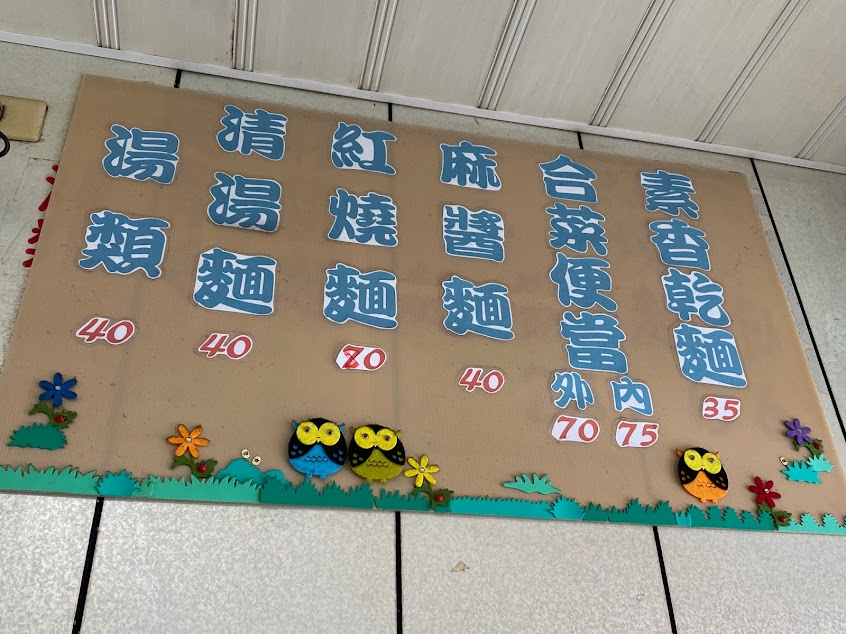 素香乾麵
35
合菜便當
外
70
內
75
麻醬麵
40
紅燒麵
70
清湯麵
40
湯類
40